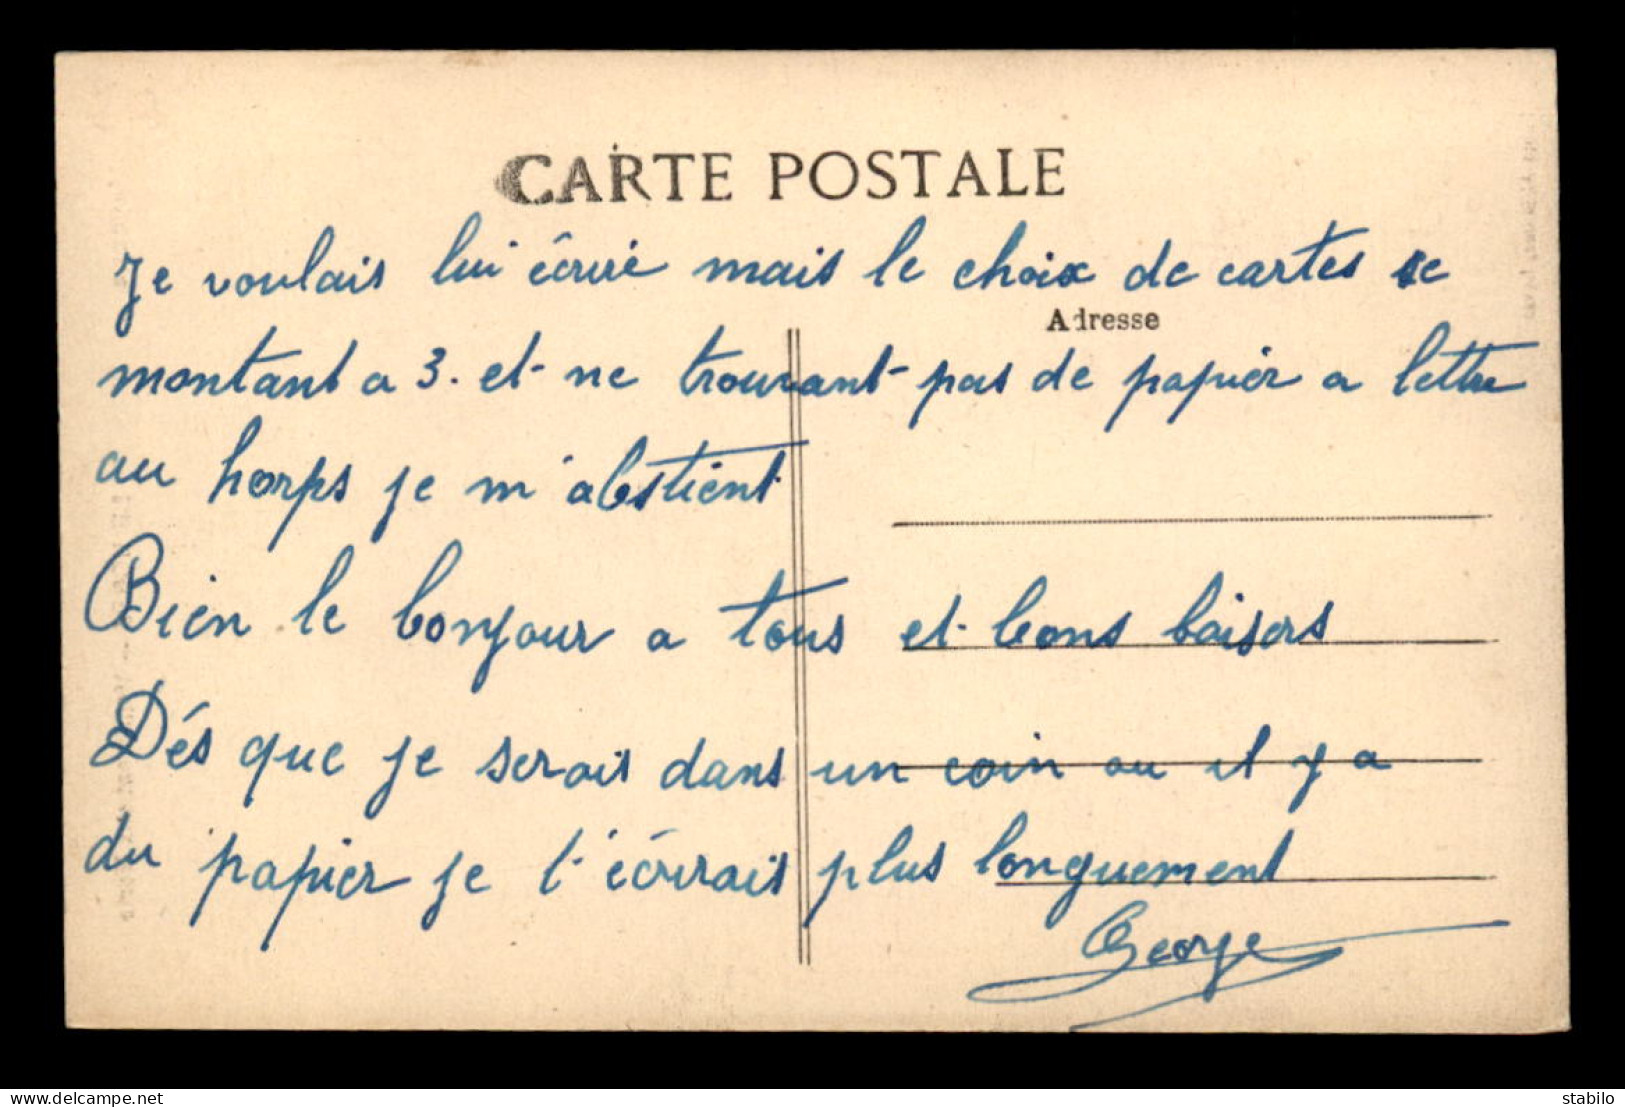 CARTE POSTALE
Je voulais lui écrire mais le choix de cartes se
Adresse
montant a 3. et ne trouvant pas de papier a lettre
au horps je m'abstient
Bien le bonjour a tous et bons baisers
Dés que je serais dans un coin ou il y a
du papier je t'écrirais plus longuement
George
delcampe.net
stabilo